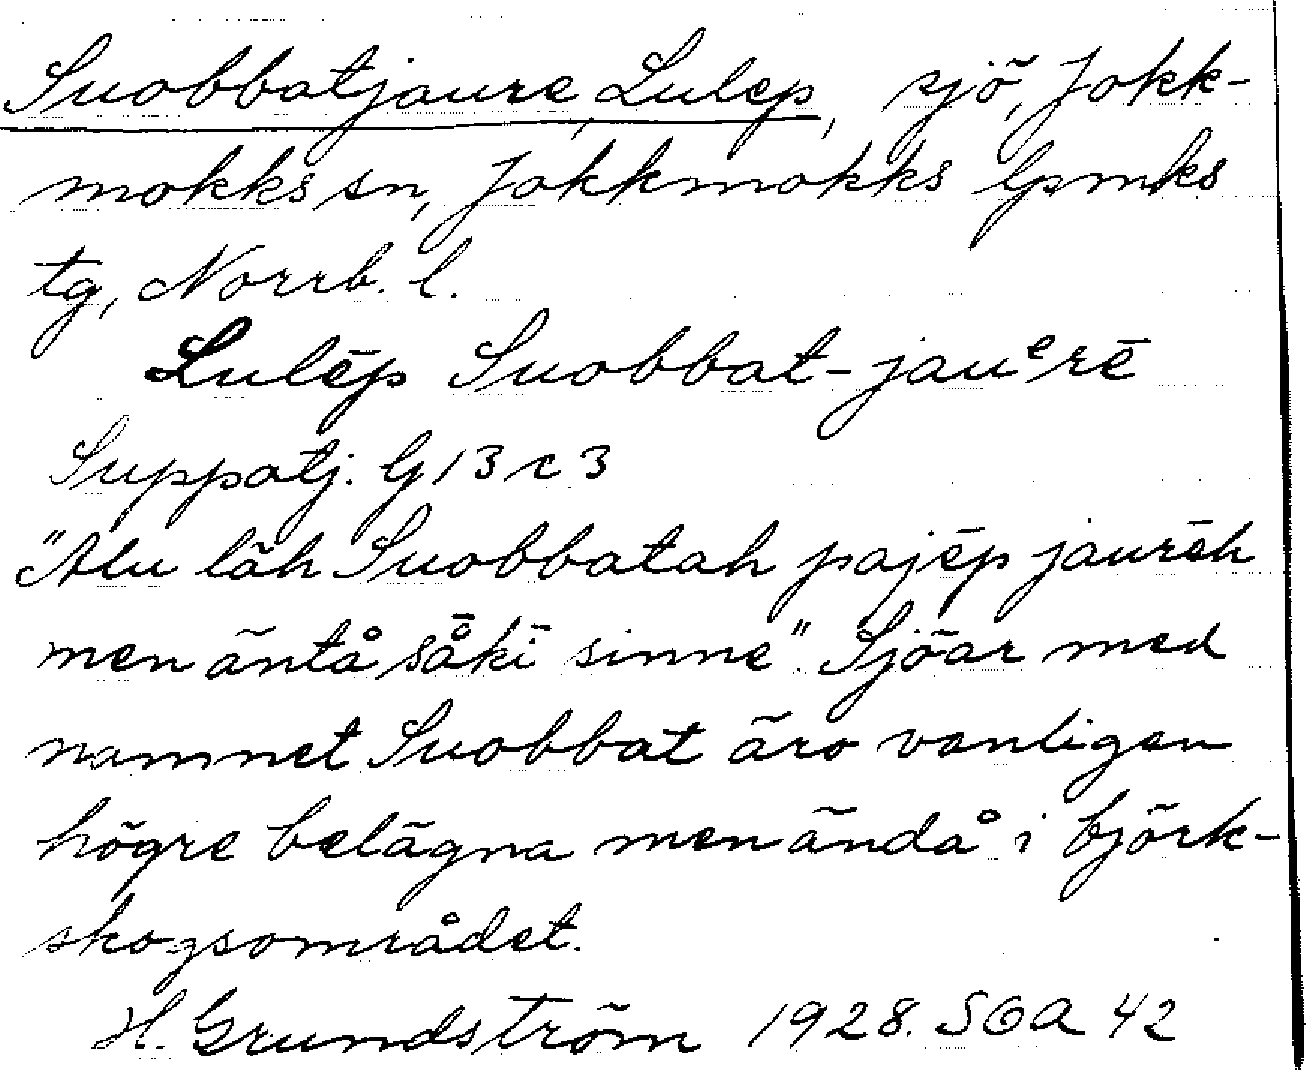 Suobbatjaure, Lulep, sjö, Jokk-
mokks sn, Jokkmokks lpmks
tg, Norrb. l.
Lulēp Suobbat-jauᵉrē
Suppatj. G 13 c 3
"Alu läh Suobbatah pajēp jaurēh
men äntå såkī sinne". Sjöar med
namnet Suobbat äro vanligen
högre belägna men ändå i björk-
skogsområdet.
H. Grundström 1928. SOA 42